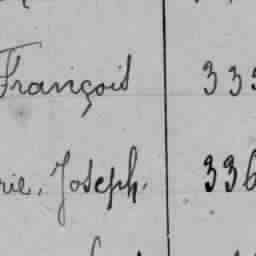 François 333
rie, Joseph. 336